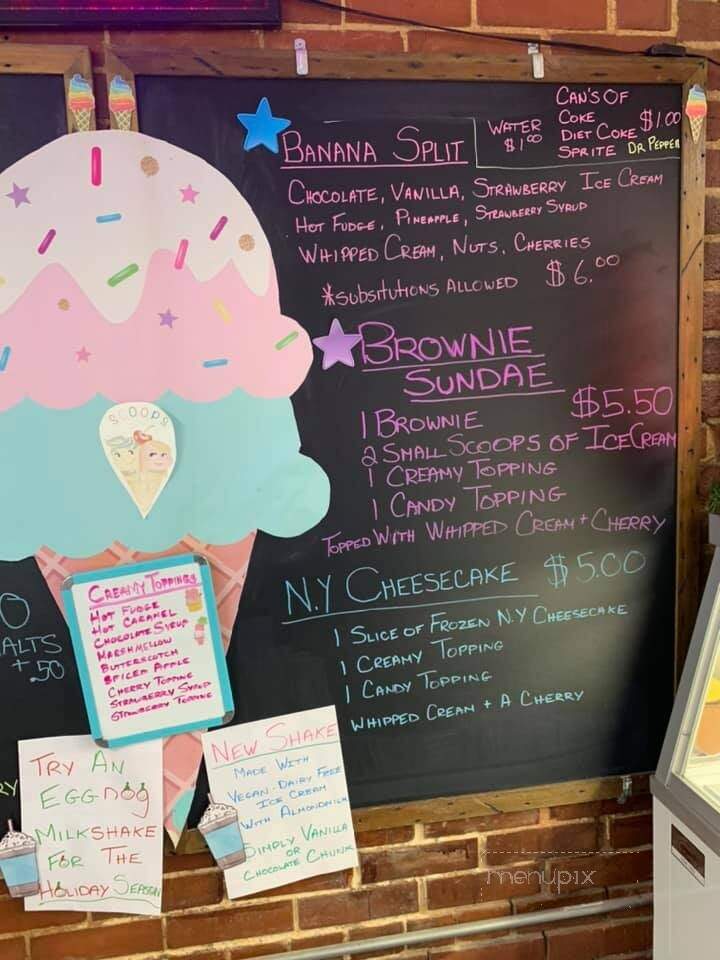 BANANA SPLIT
WATER
$1.00
CAN'S OF
COKE
DIET COKE $1.00
SPRITE DR PEPPER
CHOCOLATE, VANILLA, STRAWBERRY ICE CREAM
HOT FUDGE, PINEAPPLE, STRAWBERRY SYRUP
WHIPPED CREAM, NUTS, CHERRIES
*SUBSITUTIONS ALLOWED $6.00
BROWNIE
SUNDAE
1 BROWNIE $5.50
2 SMALL SCOOPS OF ICE CREAM
1 CREAMY TOPPING
1 CANDY TOPPING
TOPPED WITH WHIPPED CREAM + CHERRY
N.Y CHEESECAKE $5.00
1 SLICE OF FROZEN N.Y CHEESECAKE
1 CREAMY TOPPING
1 CANDY TOPPING
WHIPPED CREAM + A CHERRY
SCOOPS
CREAMY TOPPINGS
HOT FUDGE
HOT CARAMEL
CHOCOLATE SYRUP
MARSHMELLOW
BUTTERSCOTCH
SPICED APPLE
CHERRY TOPPING
STRAWBERRY SYRUP
STRAWBERRY TOPPING
ALTS
+ 50
TRY AN
EGGNOG
MILKSHAKE
FOR THE
HOLIDAY SEASON
NEW SHAKE
MADE WITH
VEGAN-DAIRY FREE
ICE CREAM
WITH ALMONDMILK
SIMPLY VANILLA
OR
CHOCOLATE CHUNK
menupix